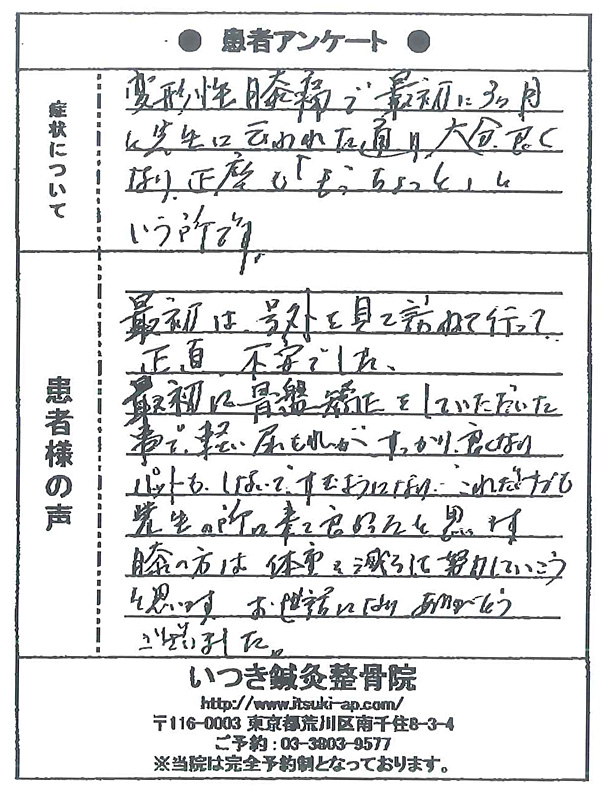 ● 患者アンケート ●
症状について
変形性膝痛で最初に3ヶ月
と先生に云われた通り、大分良く
なり、正座も「もうちょっと」と
いう所です。
患者様の声
最初は、号外を見て訪ねて行って
正直、不安でした、
最初に骨盤矯正をしていただいた
事で、軽い尿もれがすっかり良くなり
パットもしないですむようになり、これだけでも
先生の所に来て良かったと思います
膝の方は体重を減らして努力していこう
と思います お世話になりありがとう
ございました。
いつき鍼灸整骨院
http://www.itsuki-ap.com/
〒116-0003 東京都荒川区南千住8-3-4
ご予約:03-3803-9577
※当院は完全予約制となっております。